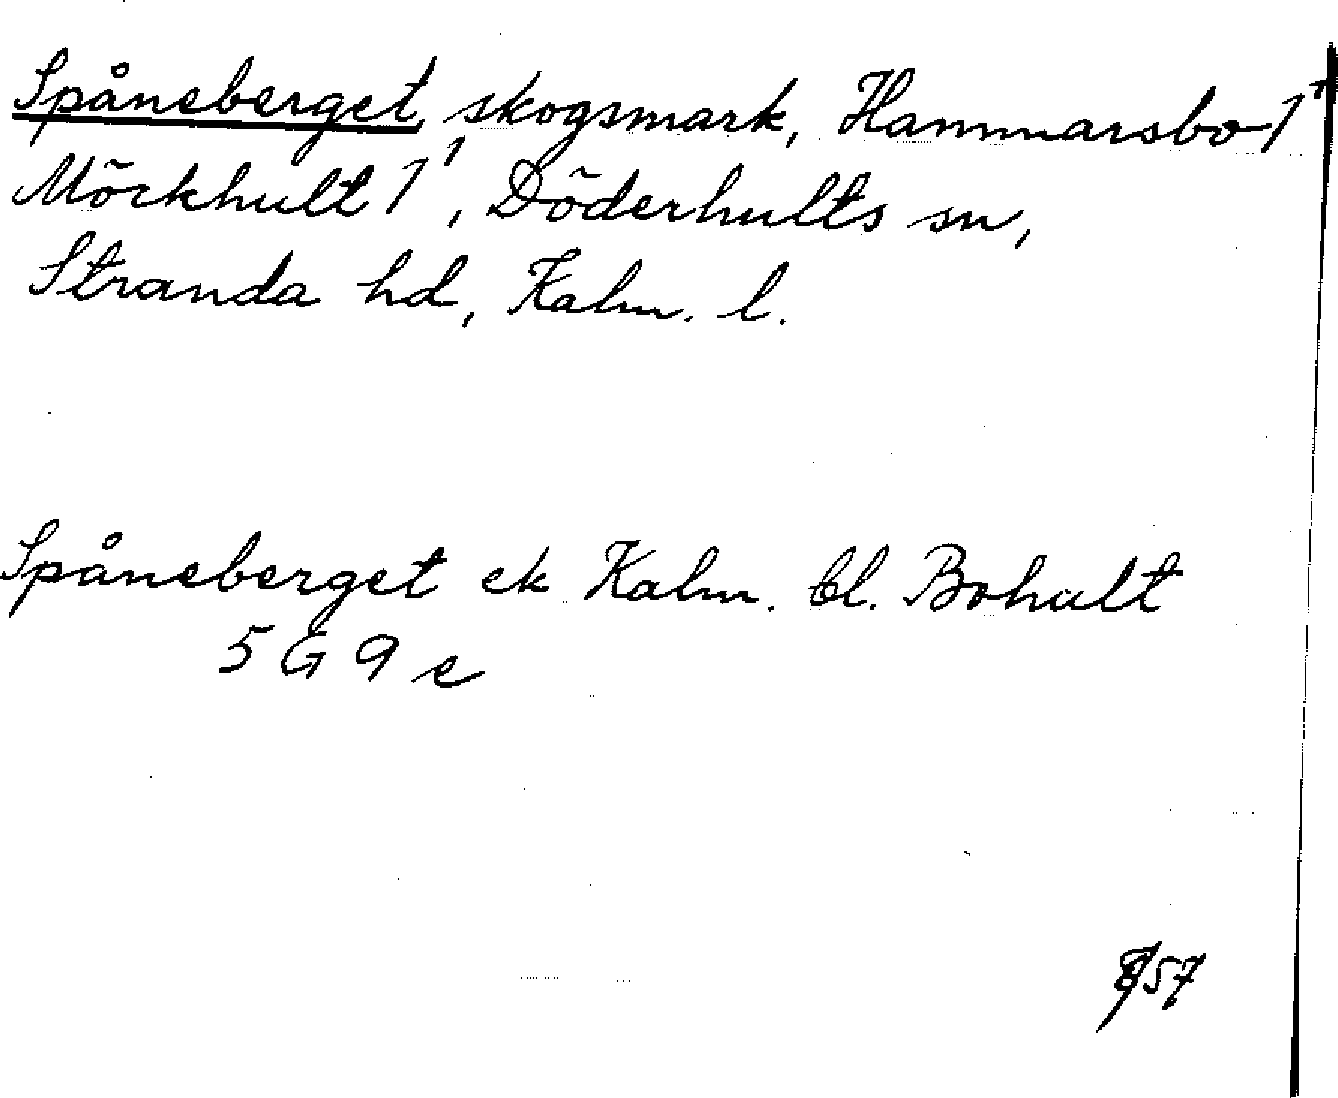 Spåneberget, skogsmark, Hammarsbo 1¹
Mörkhult 1¹, Döderhults sn,
Stranda hd, Kalm. l.
Spåneberget ek Kalm. bl. Bohult
5 G 9 e
57